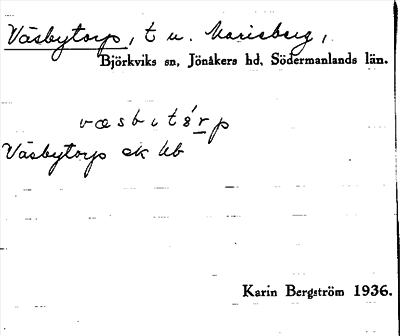 Väsbytorp, t u. Marieberg,
Björkviks sn, Jönåkers hd, Södermanlands län.
Väsbytorp ek kb
Karin Bergström 1936.